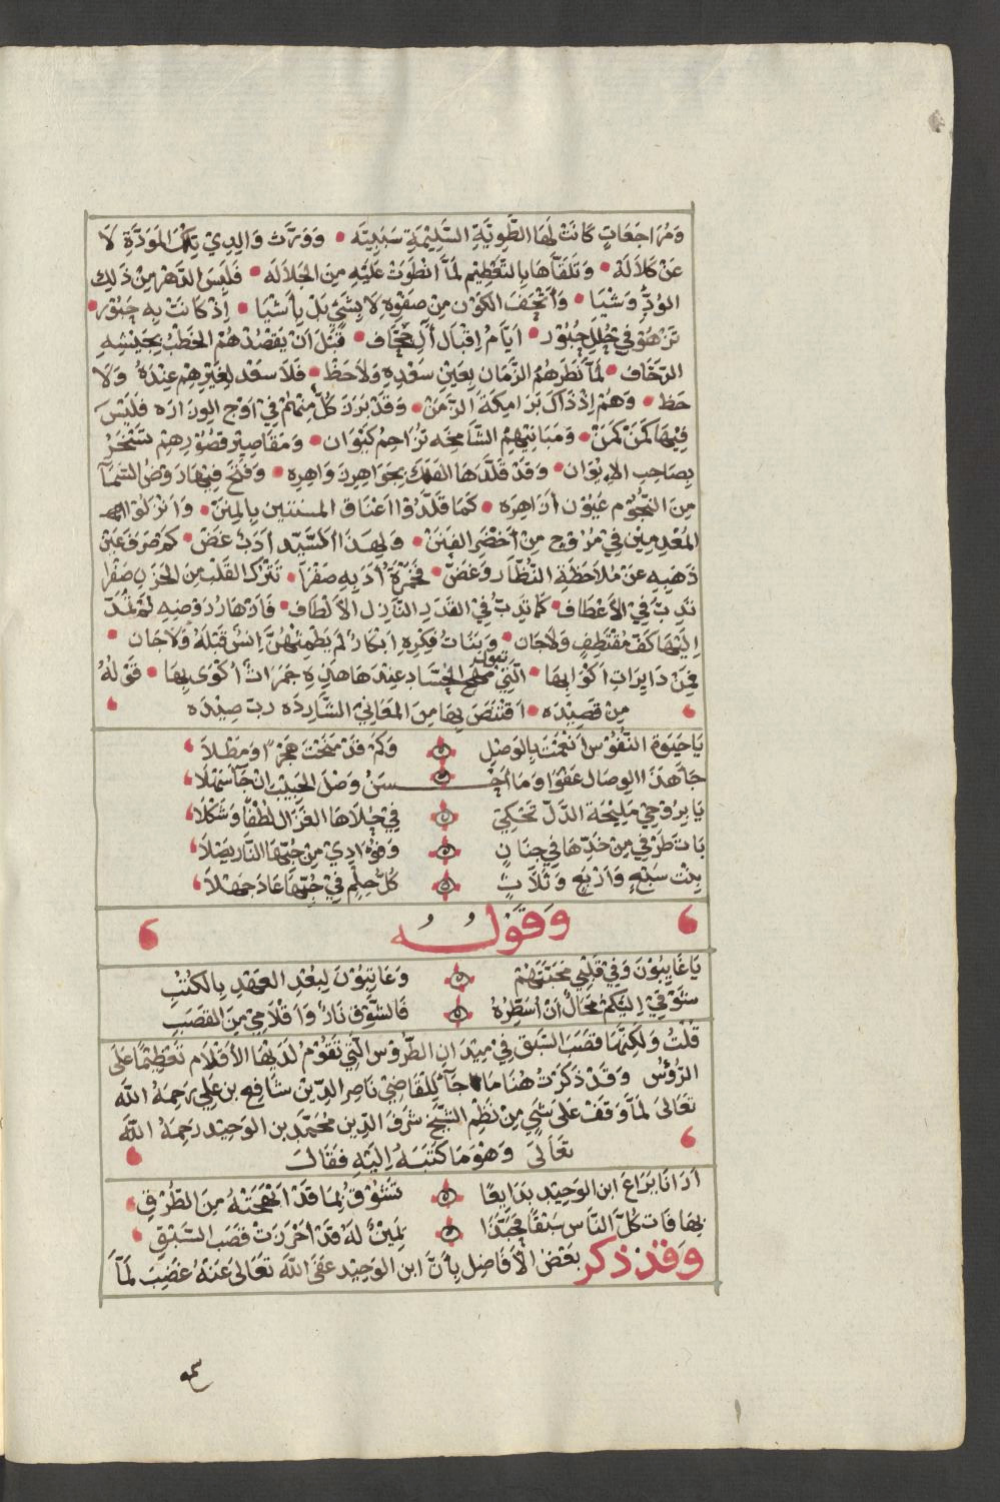 وَمُرَاجَعَاتٍ كَانَتْ لَهَا الطَّوِيَّةِ السَّلِيْمَةِ سَبَبِيَّه • وَوَرَّثَ وَالِدِيْ تِلْكَ المَوَدَّةِ لَا
عَنْ كَلَالَة • وَتَلَقَّاهَا بِالتَّعْظِيْمِ لَمَّا انْطَوَتْ عَلَيْهِ مِنَ الجَلَالَه • فَلَبِسَ الدَّهْرُ مِنْ ذَلِكَ
الوُدِّ وَشْيَا • وَأَتْحَفَ الكَوْن مِنْ صَفْوِهِ لَا بِشَيْءٍ بَلْ بِأَشْيَا • إِذْ كَانَتْ بِهِ حُبُوْر •
تَزْهُوْ فِيْ حُلَلِ حُبُوْر • أَيَّامُ إِقْبَالِ آلِ عَجَّاف • قَبْلَ اَنْ يَقْصُدَهُمُ الخَطْبُ بِجَيْشِهِ
الزَّحَّاف • لَمَّا نَظَرَهُمُ الزَّمَان بِعَيْنِ سَعْدِهِ وَلَاحَظَ • فَلَا سَعْدَ لِغَيْرِهِمْ عِنْدَهُ وَلَا
حَظ • وَهُمْ اِذْ ذَاكَ بَرَامِكَةَ الزَّمَنْ • وَقَدْ بَرَزَ كُلٌّ مِنْهُمْ فِيْ اَوْجِ الوِزَارَه فَلَيْسَ
فِيْهَا كَمَنْ كَمَنْ • وَمَبَانِيْهِمُ الشَّامِخَه تُزَاحِمُ كَيْوَان • وَمَقَاصِيْرُ قُصُوْرِهِمْ تَسْخَرُ
بِصَاحِبِ الاِيْوَان • وَقَدْ قَلَّدَهَا الفَلَكُ بِجَوَاهِرِهِ زَاهِرِه • وَفَتَحَ فِيْهَا رَوْضُ السَّمَآ
مِنَ النُّجُوْمِ عُيُوْن أَزَاهِرَه • كَمَا قَلَّدُوْا اَعْنَاقَ المسنتين بِالمِنَنْ • وَاَنْزَلُوْا
المُعْدِمِيْنَ فِيْ مُرُوْجٍ مِنْ أَخْضَرِ الفَنَنْ • وَلِهَذَا السَّيِّد أَدَبٌ غَضّ • كَمْ صَرَفَ عَيْنَ
ذَهَبِهِ عَنْ مُلَاحَظَةِ النُّظَّار وَغَضّ • فَخَمْرَةُ أَدَبِهِ صَفْرَآ • تَتْرُكُ القَلْبَ مِنَ الحُزْنِ صَفْرا
تَدِبّ فِي الأَعْطَاف • كَمَا تَدِبّ فِيْ القَدَرِ النَّازِلِ الأَلْطَاف • فَازْهَارُ رَوْضِهِ لَمْ تُمَدّ
اِلَيْهَا كَفّ مُقْتَطِفٍ وَلَاجَان • وَبَنَاتُ فِكْرِهِ اَبْكَارٌ لَمْ يَطْمِثْهُنَّ اِنْسٌ قَبْلَهُ وَلَا جَان •
فَمِنْ دَايِرَاتِ اَكْوَابِهَا • الَّتِيْ الحُسَّاد عِنْدَهَا هَذِهِ جَمَرَاتٌ اُكْوَى بِهَا • قَوْلُهُ
مِنْ قَصِيْدَه • اقْتَنَصَ بِهَا مِنَ المَعَانِيْ الشَّارِدَه رب صِيْدَه
يَا حَيَوةَ النُّفُوْسِ اَنْعَمْتَ بِالوَصْلِ وَكَمْ قَدْ مَنَحْتَ هَجْرًا وَمَطْلَا
جَا هَذَا الوِصَال عَفْوًا وَمَا اَحْسَنْ وَصْلَ الحَبِيْبِ اِنْ جَآ سَهْلَا
يَا بِرُوْحِيْ مَلِيْحَة الدَّلّ تَحْكِيْ فِيْ حِلَاهَا الغَزَال لُطْفًا وَشَكْلَا
بَاتَ طَرْفِيْ مِنْ خَدِّهَا فِيْ جِنَانٍ وَفُؤَادِيْ مِنْ حُبِّهَا النَّار يَصْلَا
بِنْتُ سَبْعٍ وَأَرْبَعٍ وَثَلَاثٍ كُلُّ حِلْمٍ فِيْ حُبِّهَا عَادَ جَهْلَا
وَقَوْلُهُ
يَا غَايِبُوْنَ وَفِيْ قَلْبِيْ مَحَبَّتُهُمْ وَعَاتِبُوْنَ لِبُعْدِ العَهْدِ بِالكُتُبِ
شَوْقِيْ اِلَيْكُمْ مَحَالٌ اَنْ اُسَطِّرُهُ فَالشَّوْق نَارٌ وَاَقْلَامِيْ مِنَ القَصَبِ
قُلْتُ وَلَكِنَّهَا قَصَبَ السَّبْق فِيْ مِيْدَانِ الطُّرُوْسِ الَّتِيْ تَقُوْمُ لَدَيْهَا الأَقْلَام تَعْظِيْمًا عَلَى
الرُّؤُسْ وَقَدْ ذَكَرْتُ هُنَا مَا جَآ لِلْقَاضِيْ نَاصِرِ الدِّيْنِ شَافِعِ بن عَلِيْ رَحِمَهُ اللّٰه
تَعَالَى لَمَّا وَقَفَ عَلَى شَيءٍ مِنْ نَظْمِ الشَّيْخ شَرَفَ الدِّيْن مُحَمَّد بن الوَحِيْد رَحِمَهُ اللّٰه
تَعَالَى وَهُوَ مَا كَتَبَهُ اِلَيْهِ فَقَالَ
أَرَانَا يَرَاعُ ابن الوَحِيْدِ بَدَايِعًا تَشُوْقُ بِمَا قَدْ اَنْهَجَتْهُ مِنَ الطُّرُقِ
بِهَا فَاتَ كُلَّ النَّاسِ سَبْقًا فَحَبَّذَا يَمِيْنٌ لَهُ قَدْ اَحْرَزَتْ قَصَبَ السَّبْقِ
وَقَدْ ذَكَرَ بَعْضُ الأَفَاضِل بِأَنَّ ابن الوَحِيْد عَفَى اللّٰه تَعَالَى عَنْهُ غَضِبَ لَمَّا
سمه